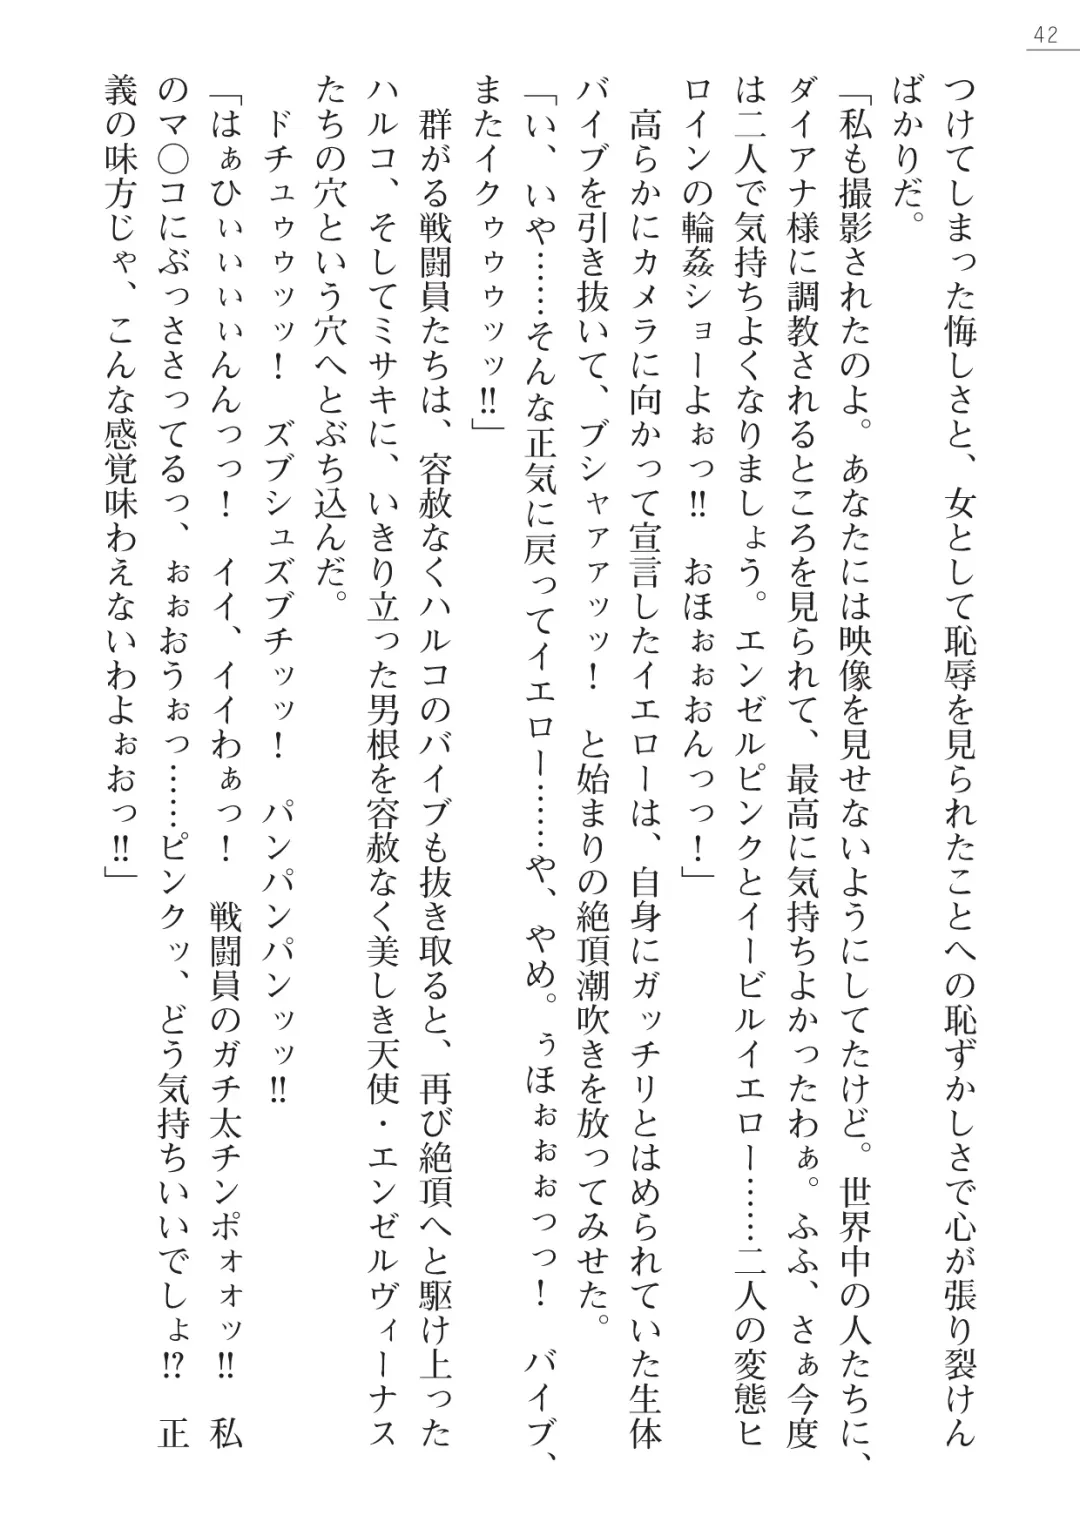 42
つけてしまった悔しさと、女として恥辱を見られたことへの恥ずかしさで心が張り裂けん
ばかりだ。
「私も撮影されたのよ。あなたには映像を見せないようにしてたけど。世界中の人たちに、
ダイアナ様に調教されるところを見られて、最高に気持ちよかったわぁ。ふふ、さぁ今度
は二人で気持ちよくなりましょう。エンゼルピンクとイービルイエロー……二人の変態ヒ
ロインの輪姦ショーよぉっ‼　おほぉぉおんっっ！」
　高らかにカメラに向かって宣言したイエローは、自身にガッチリとはめられていた生体
バイブを引き抜いて、ブシャァァッッ！　と始まりの絶頂潮吹きを放ってみせた。
「い、いや……そんな正気に戻ってイエロー……や、やめ。ぅほぉぉぉっっ！　バイブ、
またイクゥゥゥッッ‼」
　群がる戦闘員たちは、容赦なくハルコのバイブも抜き取ると、再び絶頂へと駆け上った
ハルコ、そしてミサキに、いきり立った男根を容赦なく美しき天使・エンゼルヴィーナス
たちの穴という穴へとぶち込んだ。
　ドチュゥゥッッ！　ズブシュズブチッッ！　パンパンパンッッ‼
「はぁひぃぃぃぃんんっっ！　イイ、イイわぁっ！　戦闘員のガチ太チンポォォッ‼　私
のマ〇コにぶっささってるっ、ぉぉおうぉっ……ピンクッ、どう気持ちいいでしょ⁉　正
義の味方じゃ、こんな感覚味わえないわよぉおっ‼」